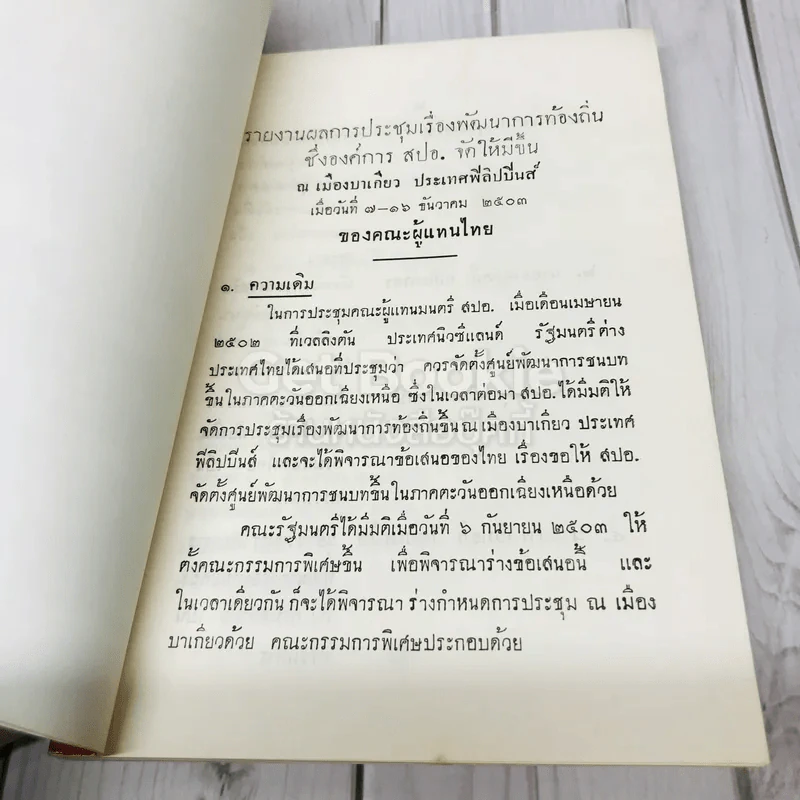 รายงานผลการประชุมเรื่องพัฒนาการท้องถิ่น
ซึ่งองค์การ สปอ. จัดให้มีขึ้น
ณ เมืองบาเกียว ประเทศฟิลิปปินส์
เมื่อวันที่ ๗-๑๖ ธันวาคม ๒๕๐๓
ของคณะผู้แทนไทย
๑. ความเดิม
ในการประชุมคณะผู้แทนมนตรี สปอ. เมื่อเดือนเมษายน
๒๕๐๒ ที่เวลลิงตัน ประเทศนิวซีแลนด์ รัฐมนตรีต่าง
ประเทศไทยได้เสนอที่ประชุมว่า ควรจัดตั้งศูนย์พัฒนาการชนบท
ขึ้นในภาคตะวันออกเฉียงเหนือ ซึ่งในเวลาต่อมา สปอ. ได้มีมติให้
จัดการประชุมเรื่องพัฒนาการท้องถิ่นขึ้น ณ เมืองบาเกียว ประเทศ
ฟิลิปปินส์ และจะได้พิจารณาข้อเสนอของไทย เรื่องขอให้ สปอ.
จัดตั้งศูนย์พัฒนาการชนบทขึ้นในภาคตะวันออกเฉียงเหนือด้วย
คณะรัฐมนตรีได้มีมติเมื่อวันที่ ๖ กันยายน ๒๕๐๓ ให้
ตั้งคณะกรรมการพิเศษขึ้น เพื่อพิจารณาร่างข้อเสนอนี้ และ
ในเวลาเดียวกัน ก็จะได้พิจารณา ร่างกำหนดการประชุม ณ เมือง
บาเกียวด้วย คณะกรรมการพิเศษประกอบด้วย
Get Bookie